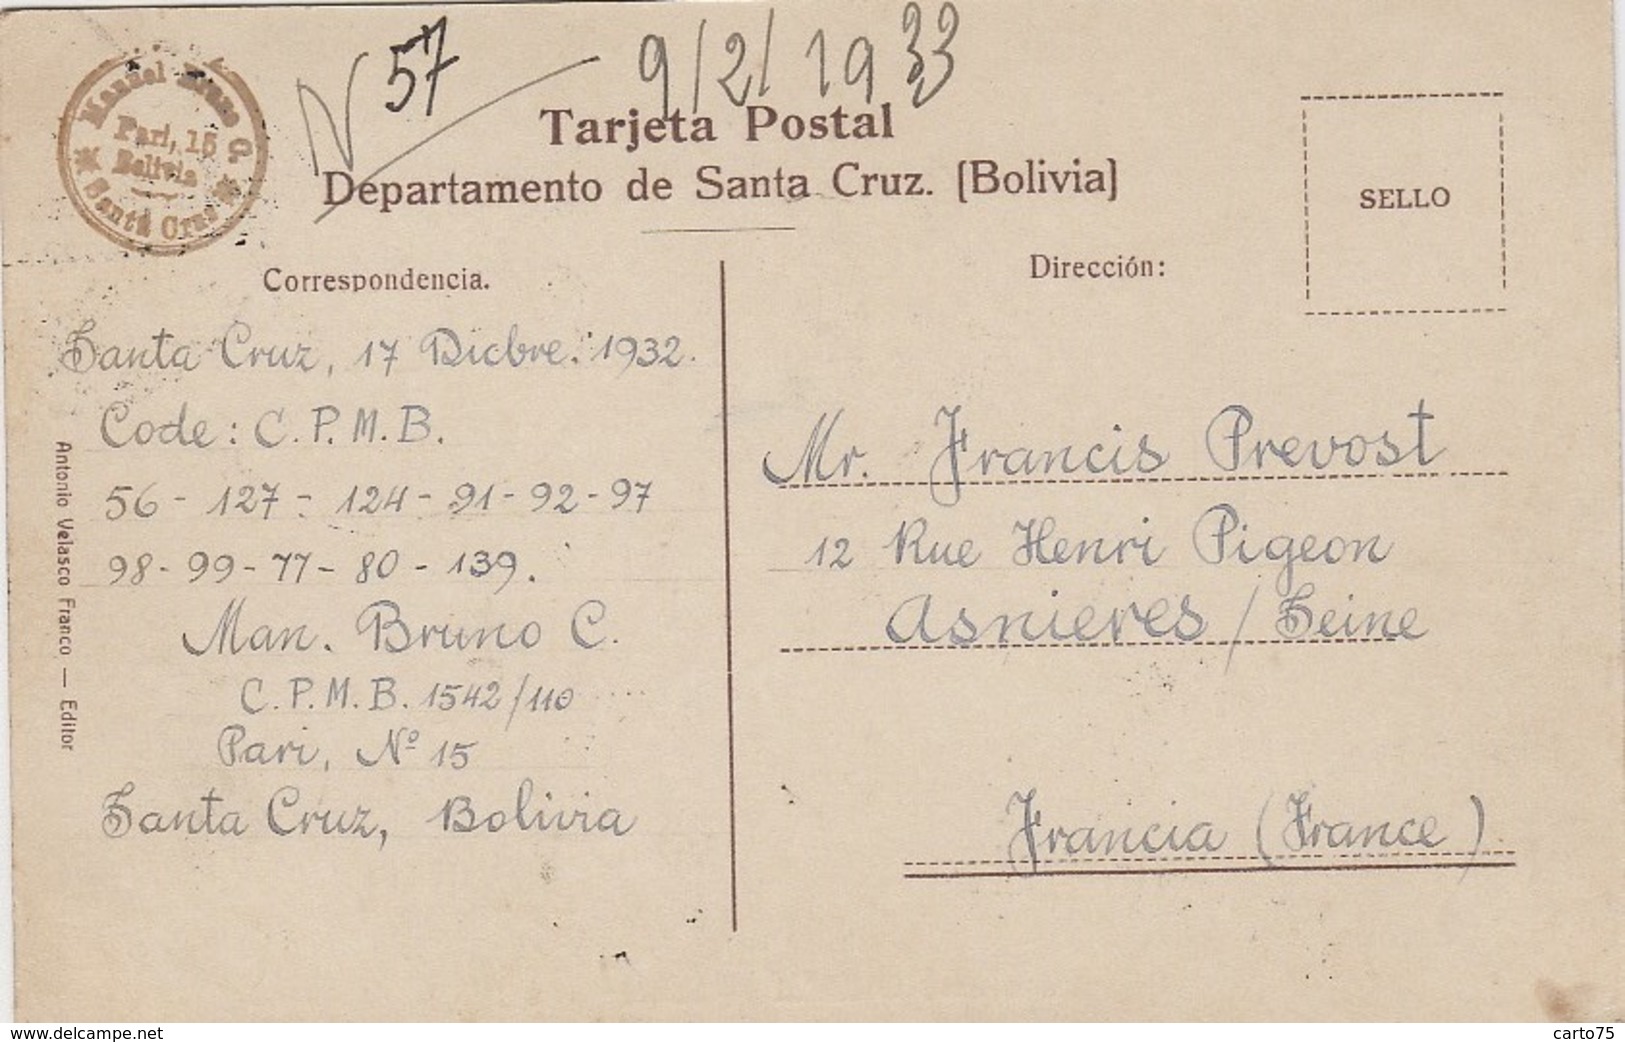 N 57 9/2/1933
Manuel Bruno C.
Pari, 15
Bolivia
Santa Cruz
Tarjeta Postal
Departamento de Santa Cruz. (Bolivia)
SELLO
Correspondencia.
Santa Cruz, 17 Dicbre. 1932.
Code: C.P.M.B.
56 - 127 - 124 - 91 - 92 - 97
98 - 99 - 77 - 80 - 139.
Man. Bruno C.
C.P.M.B. 1542/110
Pari, Nº 15
Santa Cruz, Bolivia
Antonio Velasco Franco — Editor
Dirección:
Mr. Francis Prevost
12 Rue Henri Pigeon
Asnieres / Seine
Francia (France)
www.delcampe.net
carto75